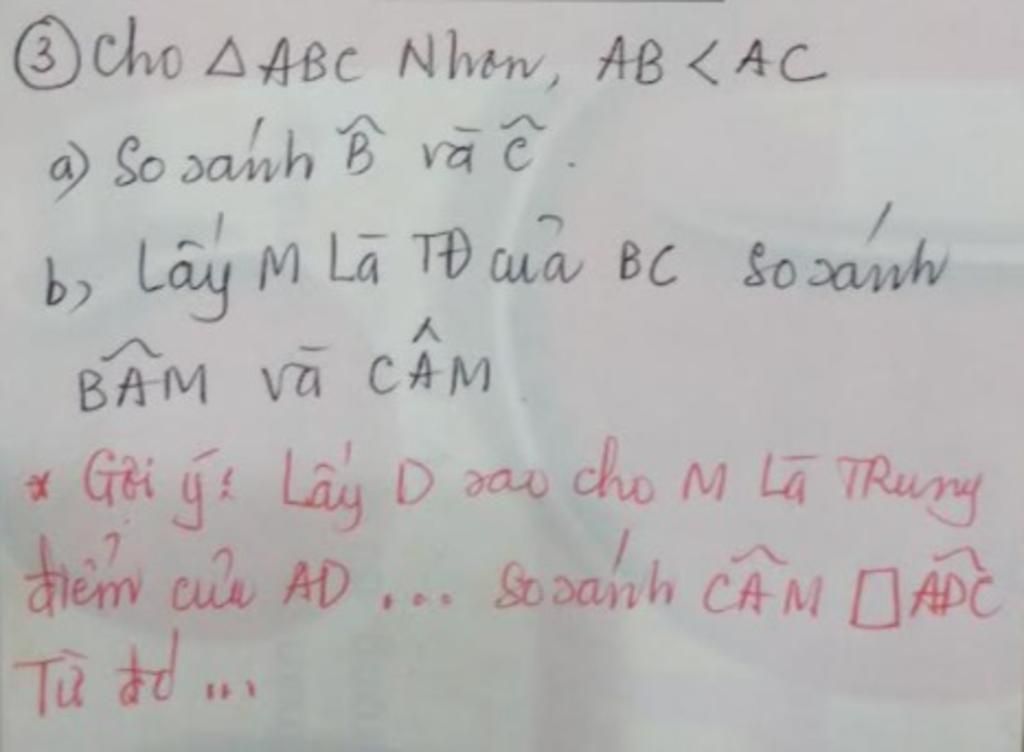 ③ Cho △ABC Nhọn, AB < AC
a) So sánh B̂ và Ĉ.
b) Lấy M Là TĐ của BC so sánh
BÂM và CÂM
* Gợi ý: Lấy D sao cho M Là TRung
điểm của AD ... so sánh CÂM □ ADC
Từ đó ...